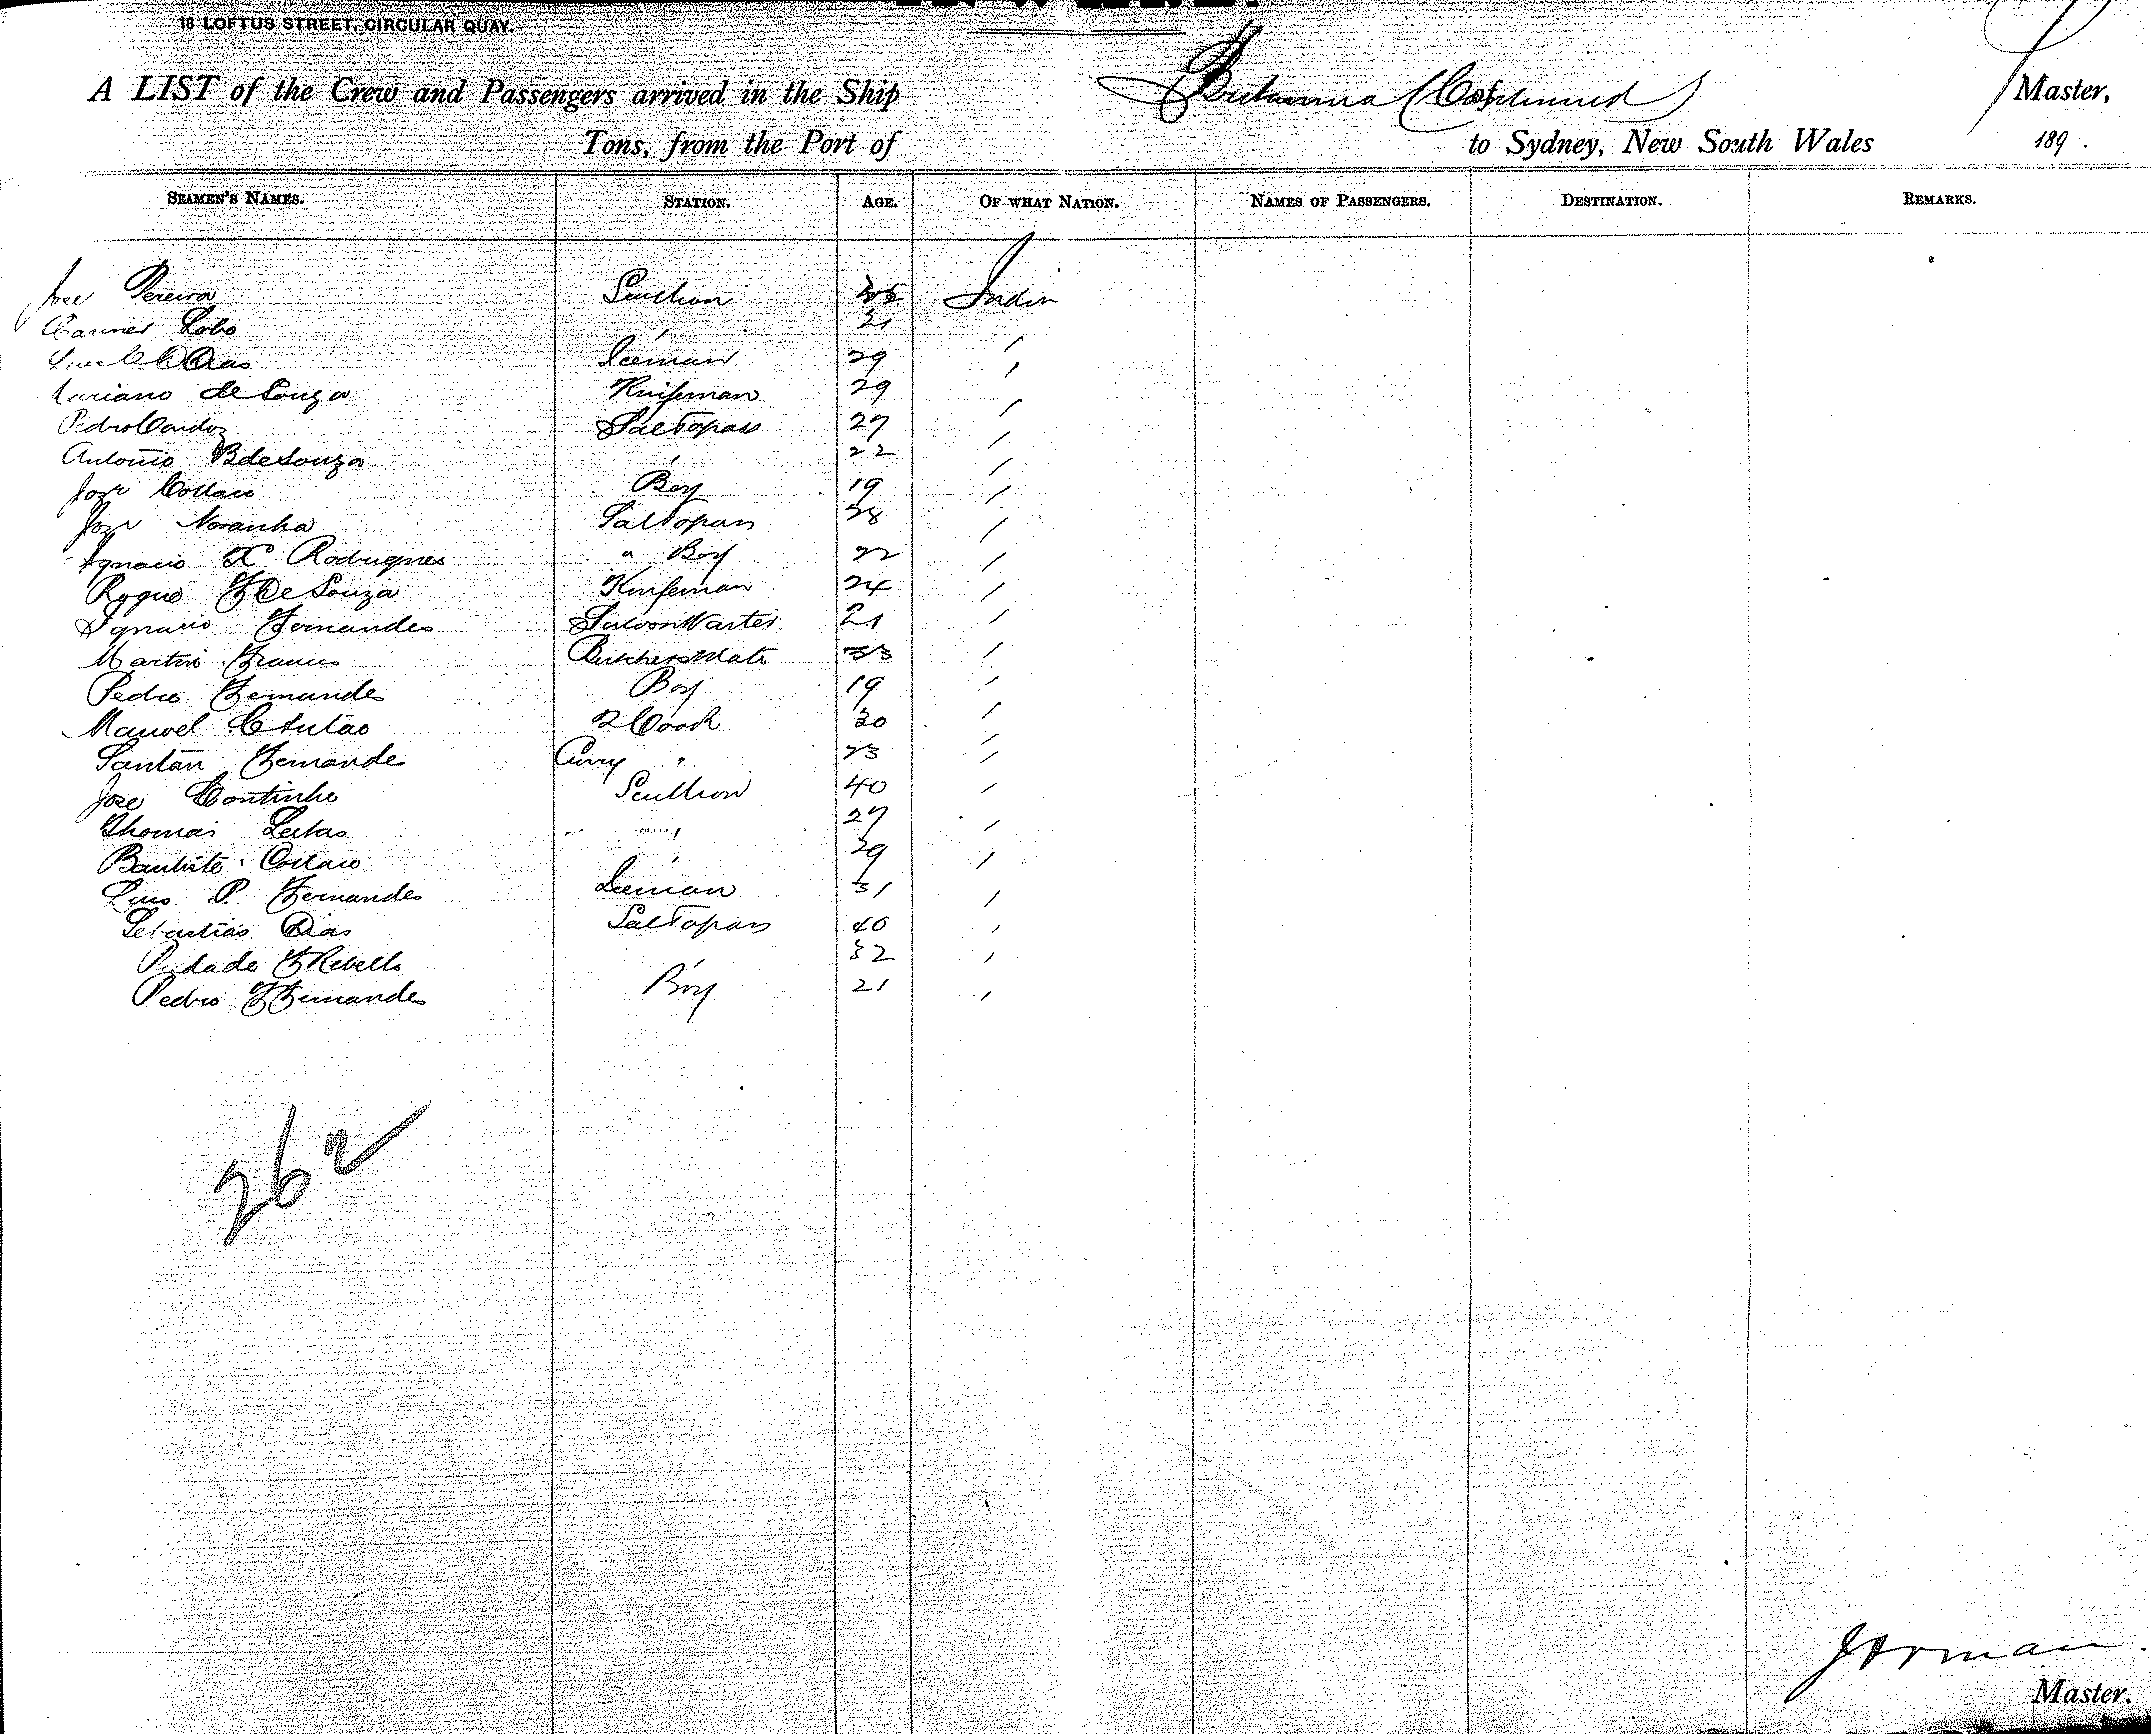 18 LOFTUS STREET, CIRCULAR QUAY.
A LIST of the Crew and Passengers arrived in the Ship Britannia (Continued) Master,
Tons, from the Port of to Sydney, New South Wales 189 .
SEAMEN'S NAMES. STATION. AGE. OF WHAT NATION. NAMES OF PASSENGERS. DESTINATION. REMARKS.
Jose Pereira Scullion India
Lobo 21 "
Dias Iceman 29 "
Mariano de Souza Knifeman 29 "
Pedro Cardoz Sal Topass 27 "
Antonio B de Souza " 22 "
Joze Collaco Boy 19 "
Joze Noranha Sal Topass 28 "
Ignacio X Rodrigues " Boy 22 "
Roque F De Souza Knifeman 24 "
Ignacio Fernandes Saloon Waiter 21 "
Martin Francis Butchers Mate 33 "
Pedro Fernandes Boy 19 "
Manoel C 2 Cook 30 "
Santan Fernande Curry " 23 "
Jose Continho Scullion 40 "
Thomas " 27 "
Bautiste Collaco " 29 "
Luis P. Fernandes Iceman 31 "
Sebastiao Dias Sal Topass 40 "
Piedade F Rebello " 32 "
Pedro F Fernandes Boy 21 "
262
Master.